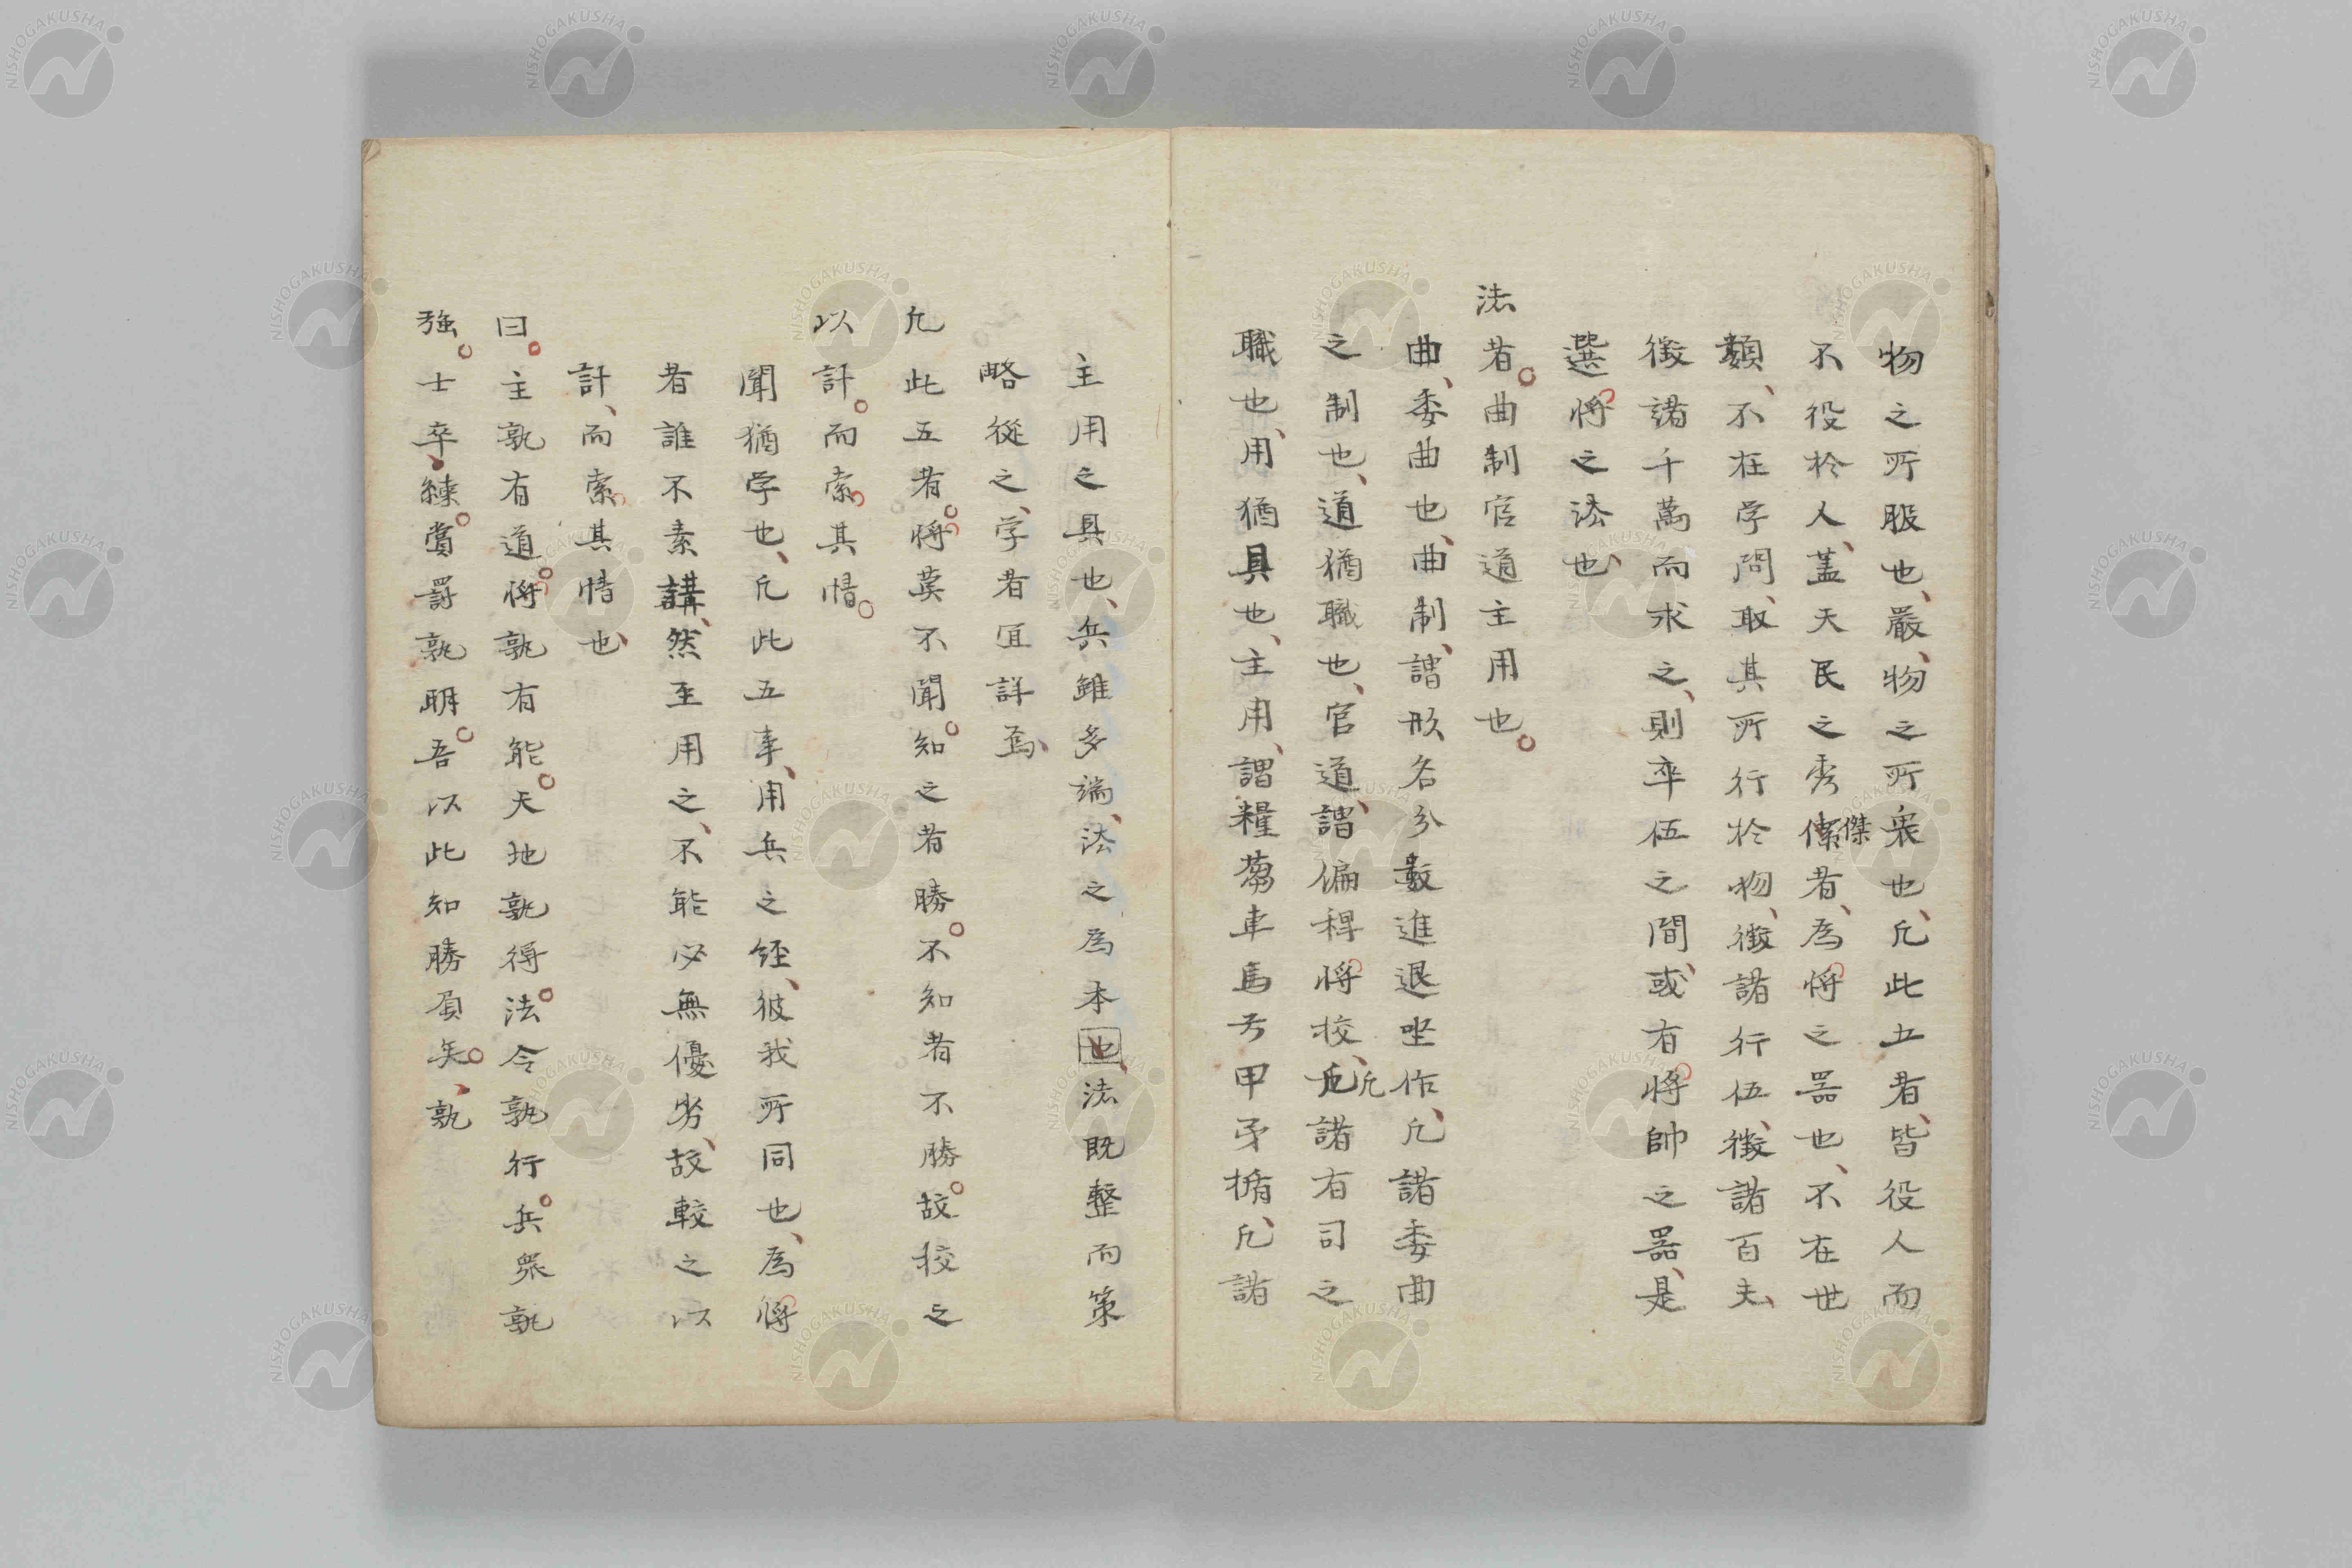 物之所服也、嚴、物之所衆也、凡此五者、皆役人而
不役於人、蓋天民之秀傑傑者、為將之器也、不在世
類、不在学問、取其所行於物、徴諸行伍、徴諸百夫、
徴諸千萬而求之、則卒伍之間、或有將帥之器、是
選將之法也、
法者。曲制官道主用也。
曲、委曲也、曲制、謂形名分數進退坐作、凡諸委曲
之制也、道猶職也、官道、謂偏稗將校、凡諸有司之
職也、用猶具也、主用、謂糧蒭車馬弓甲矛楯、凡諸
主用之具也、兵雖多端、法之為本也、法既整而策
略從之、学者宜詳焉、
凡此五者。將莫不聞。知之者勝。不知者不勝。故挍之
以計。而索其情。
聞猶学也、凡此五事、用兵之経、彼我所同也、為將
者誰不素講、然至用之、不能必無優劣、故較之以
計、而索其情也、
曰。主孰有道。將孰有能。天地孰得。法令孰行。兵衆孰
強。士卒孰練。賞罰孰明。吾以此知勝負矣。